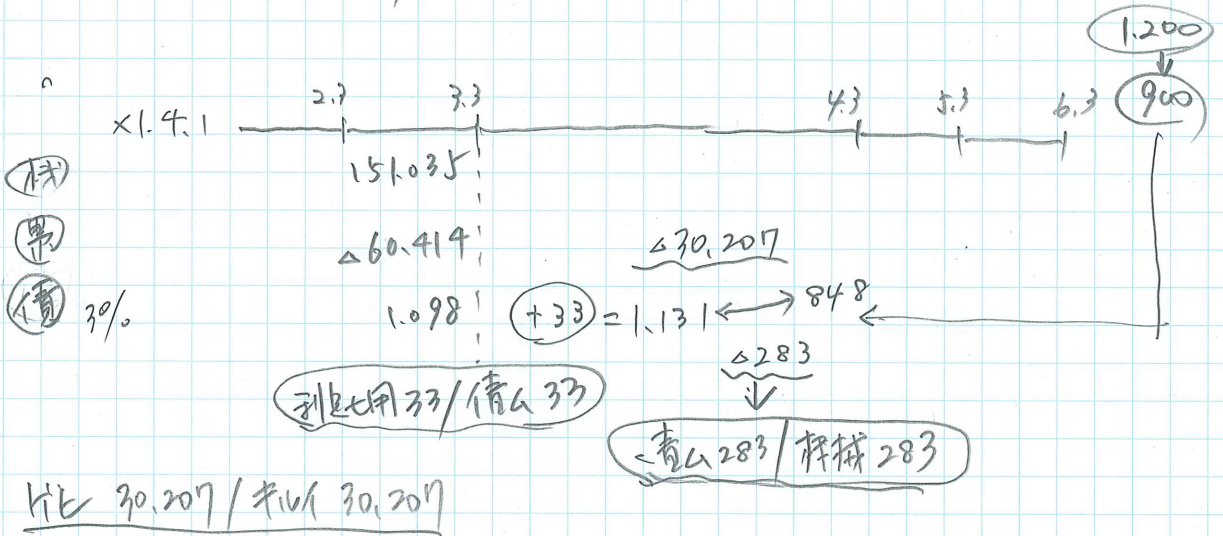 1.200
900
×1.4.1 2.3 3.3 4.3 5.3 6.3
機 151.035
累 △60.414 △30,207
債 3% 1.098 +33 = 1.131 ↔ 848
△283
利費用 33/債ム 33
債ム 283/機械 283
30,207/ルイ 30,207